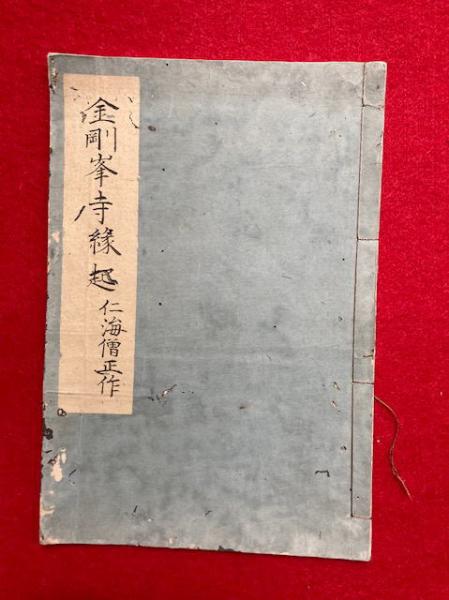 金剛峯寺縁起
仁海僧正作